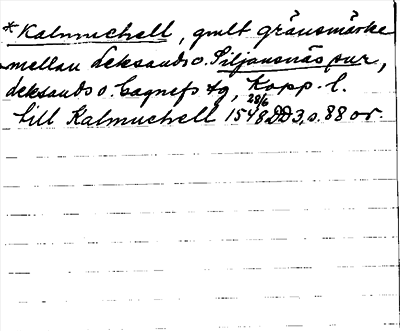 *Kalmuchell, gmlt gränsmärke
mellan Leksands o. Siljansnäs snr,
Leksands o. Gagnefs tg, Kopp. l.
till Kalmuchell 1548 28/6 DD3, s. 88 or.